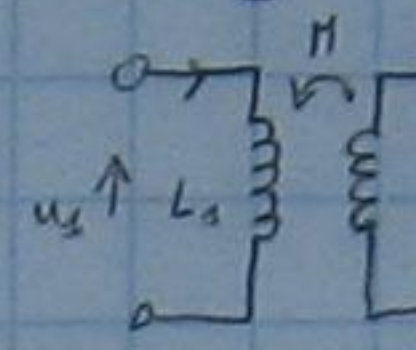 M
u₁ L₁